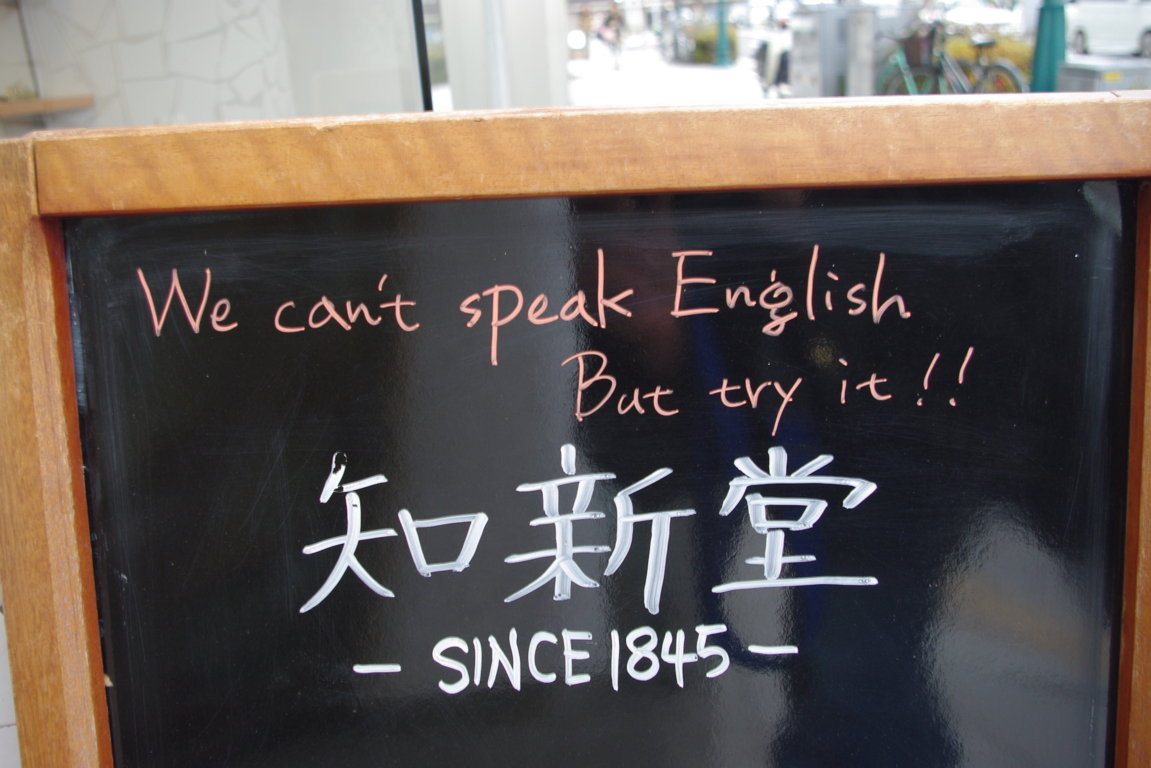 We can't speak English
But try it!!
知新堂
- SINCE 1845 -